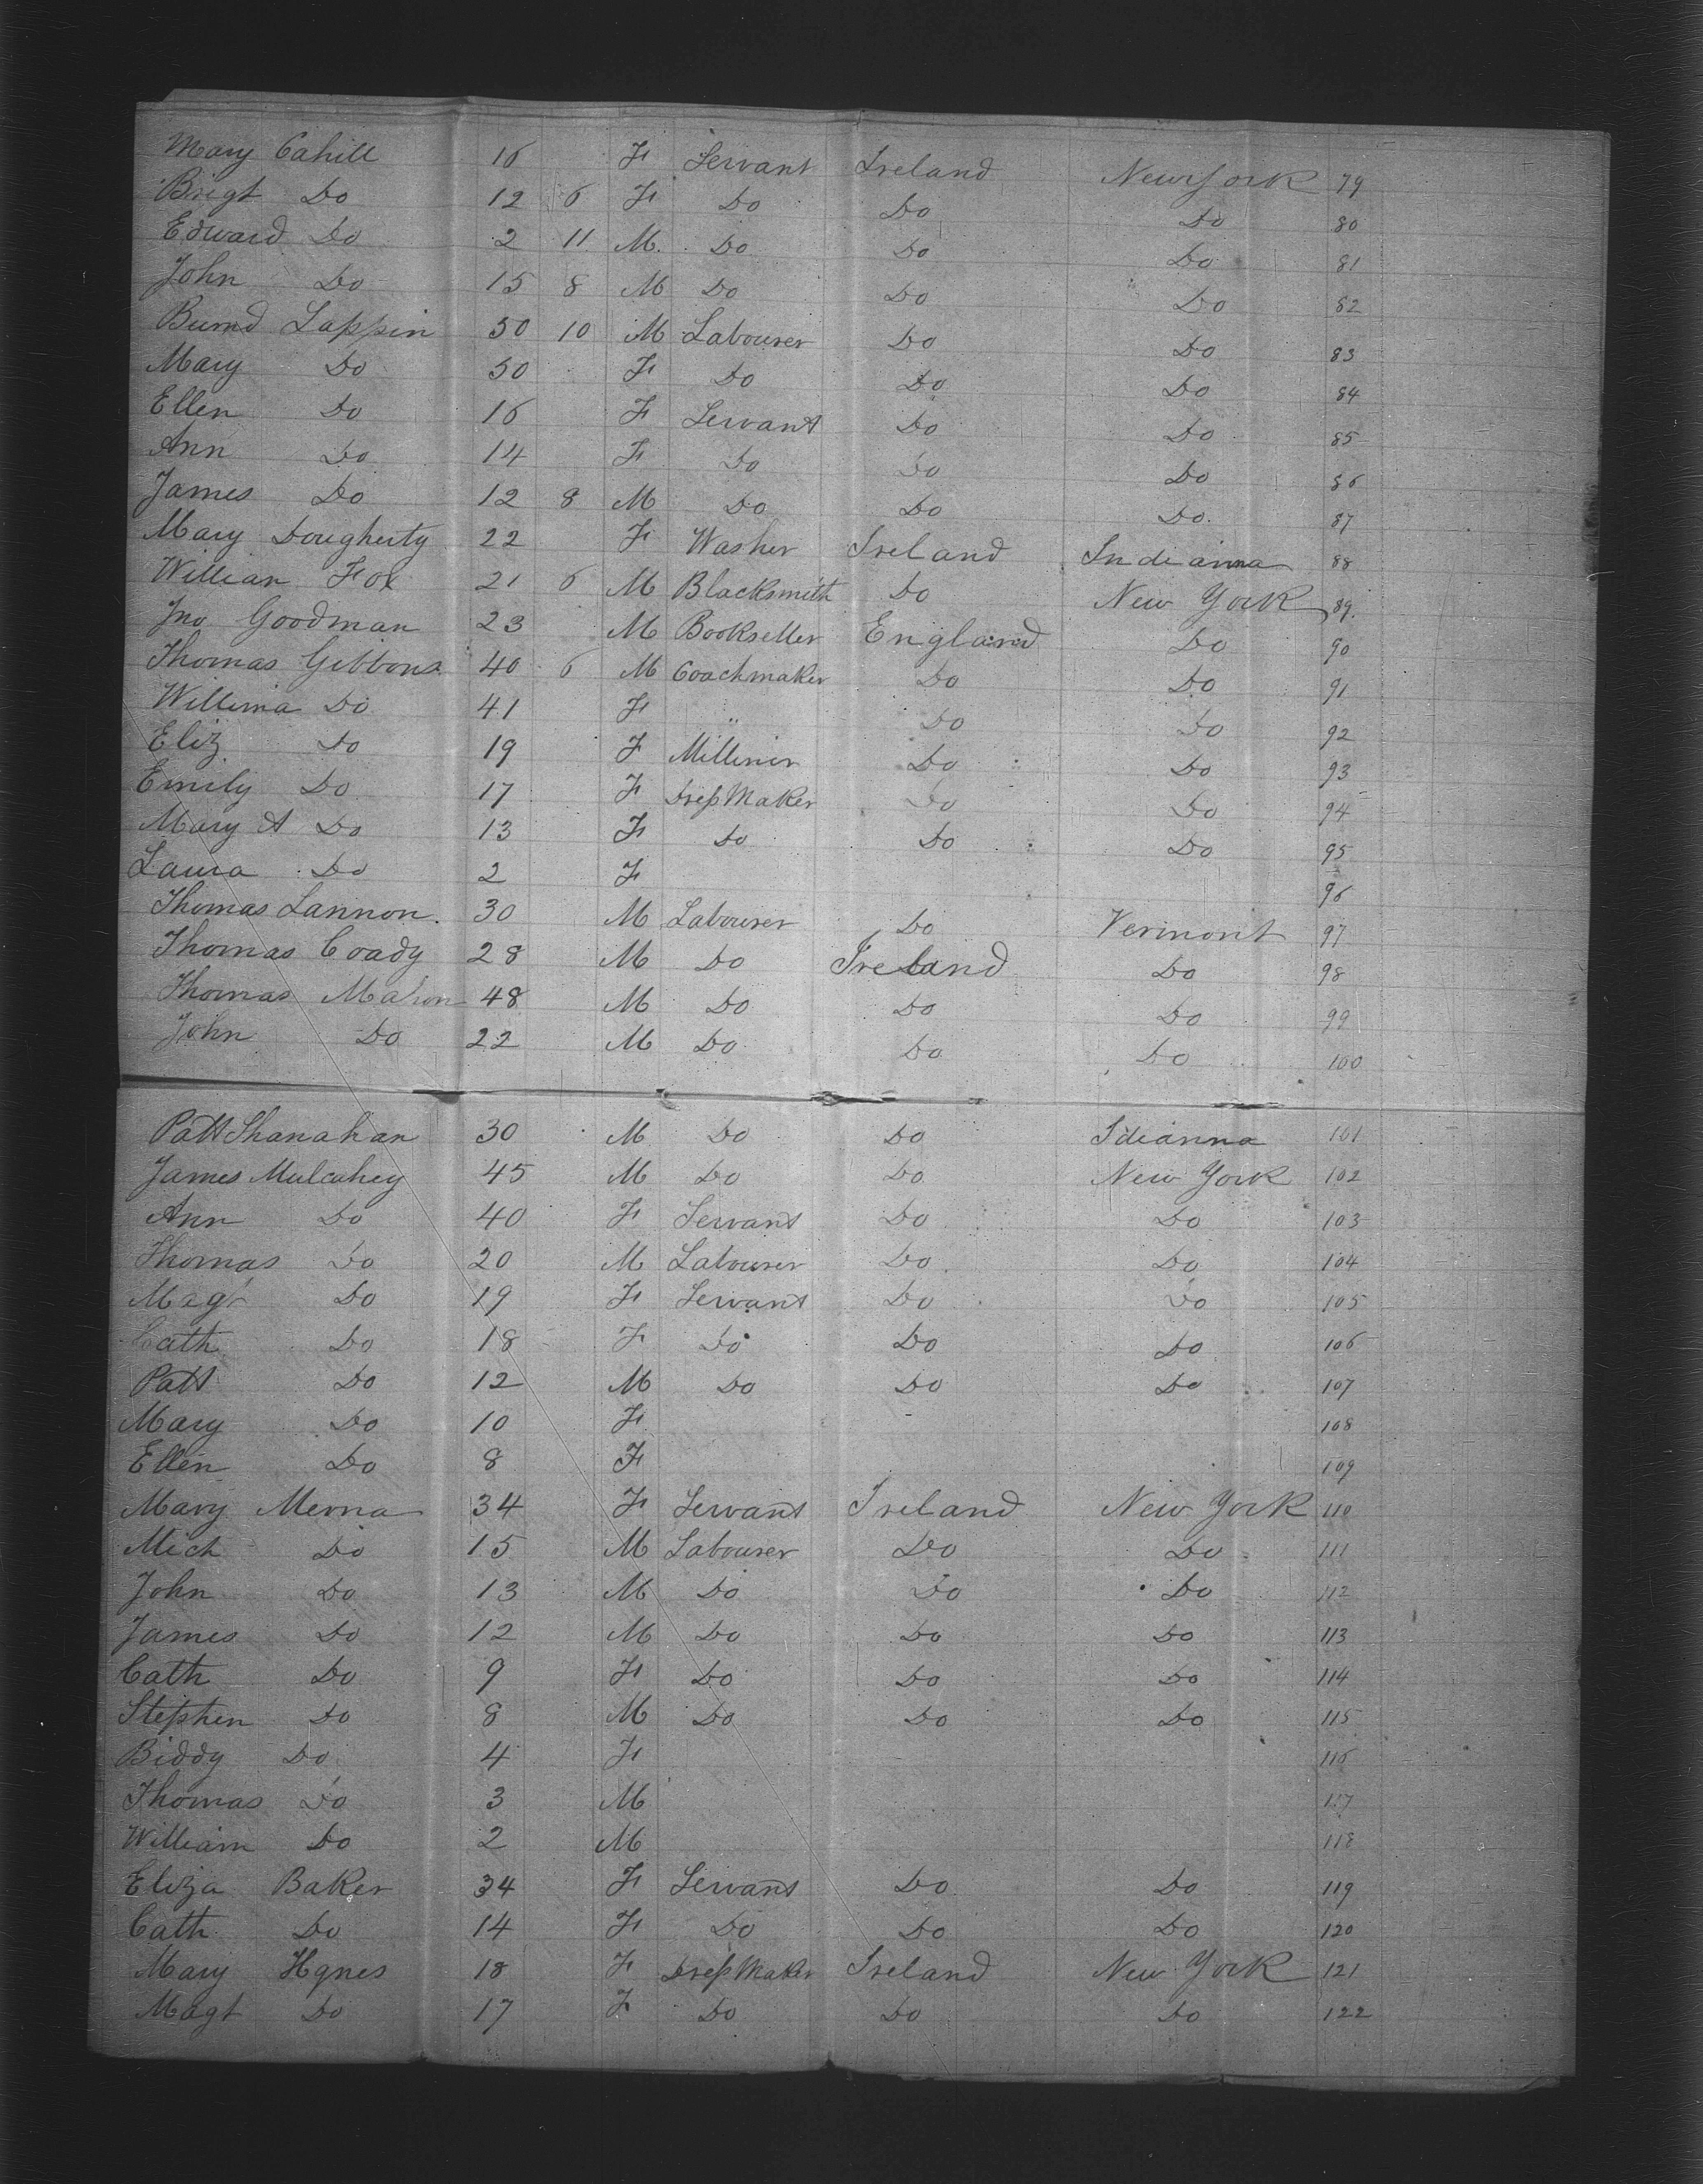 Mary Cahill 16 F Servant Ireland New York 79
Brigt Do 12 6 F Do Do Do 80
Edward Do 2 11 M Do Do Do 81
John Do 15 8 M Do Do Do 82
Burnd Lappin 50 10 M Labourer Do Do 83
Mary Do 50 F Do Do Do 84
Ellen Do 16 F Servant Do Do 85
Ann Do 14 F Do Do Do 86
James Do 12 8 M Do Do Do. 87
Mary Dougherty 22 F Washer Ireland Indianna 88
Willian Fox 21 6 M Blacksmith Do New York 89.
Jno Goodman 23 M Bookseller England Do 90
Thomas Gibbons 40 6 M Coachmaker Do Do 91
Willima Do 41 F " Do Do 92
Eliz Do 19 F Milliner Do Do 93
Emily Do 17 F Dress Maker Do Do 94
Mary A Do 13 F Do Do Do 95
Laura Do 2 F 96
Thomas Lannon. 30 M Labourer Do Vermont 97
Thomas Coady 28 M Do Ireland Do 98
Thomas Mahon 48 M Do Do Do 99
John Do 22 M Do Do Do 100
Patt Shanahan 30 M Do Do Idianna 101
James Mulcahey 45 M Do Do New York 102
Ann Do 40 F Servant Do Do 103
Thomas Do 20 M Labourer Do Do 104
Magt Do 19 F Servant Do Do 105
Cath Do 18 F Do Do Do 106
Patt Do 12 M Do Do Do 107
Mary Do 10 F 108
Ellen Do 8 F 109
Mary Merna 34 F Servant Ireland New York 110
Mich Do 15 M Labourer Do Do 111
John Do 13 M Do Do Do 112
James Do 12 M Do Do Do 113
Cath Do 9 F Do Do Do 114
Stephen Do 8 M Do Do Do 115
Biddy Do 4 F 116
Thomas Do 3 M 117
William Do 2 M 118
Eliza Baker 34 F Servant Do Do 119
Cath Do 14 F Do Do Do 120
Mary Hynes 18 F Dress Maker Ireland New York 121
Magt Do 17 F Do Do Do 122